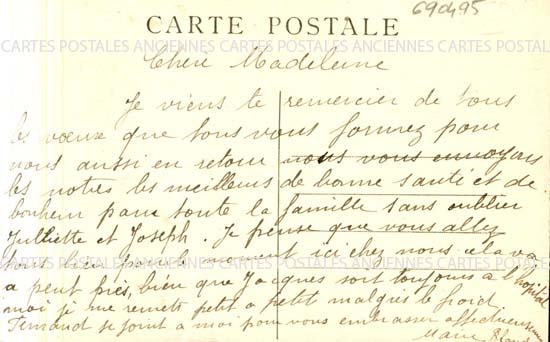 69495
CARTE POSTALE
CARTES POSTALES ANCIENNES CARTES POSTALES ANCIENNES CARTES POSTALES
Chere Madeleine
Je viens te remercier de tous
les vœux que tous vous formez pour
nous aussi en retour nous vous envoyons
les notres les meilleurs de bonne santé et de
bonheur pour toute la famille sans oublier
Julliette et Joseph. Je pense que vous allez
tous bien pour moment ici chez nous cela va
a peut près, bien que Jacques soit toujours a l'hopital
moi je me remets petit a petit malgrès le froid
Fernand se joint a moi pour vous embrasser affectueusement
Marie